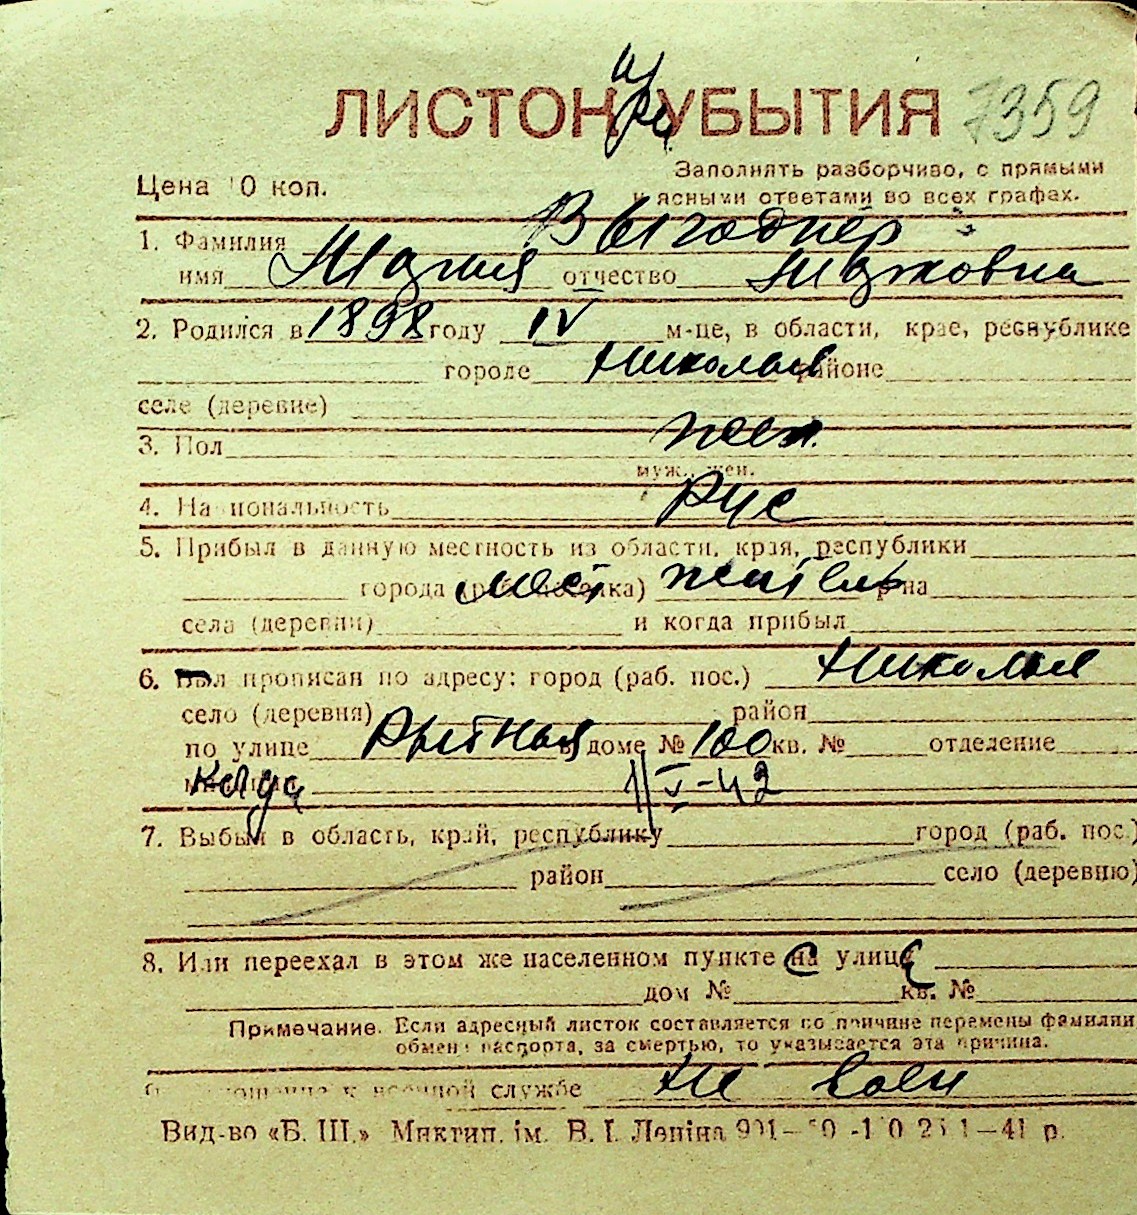 ЛИСТОН УБЫТИЯ 7359
при
Заполнять разборчиво, с прямыми
Цена 10 коп. и ясными ответами во всех графах.
1. Фамилия Выгоднер
имя Мария отчество Марковна
2. Родился в 1898 году IV м-це, в области, крае, республике
городе Николаев районе
селе (деревне)
3. Пол жен.
муж., жен.
4. Национальность Рус
5. Прибыл в данную местность из области, края, республики
города (раб. поселка) мест житель р-на
села (деревни) и когда прибыл
6. Был прописан по адресу: город (раб. пос.) Николаев
село (деревня) район
по улице Рыбная в доме № 100 кв. № отделение
1/V-42
7. Выбыл в область, край, республику город (раб. пос.)
район село (деревню)
8. Или переехал в этом же населенном пункте на улицу
дом № кв. №
Примечание. Если адресный листок составляется по причине перемены фамилии
обмена паспорта, за смертью, то указывается эта причина.
военной службе не воен
Вид-во «Б. Ш.» Миктип. ім. В. І. Леніна 41 р.